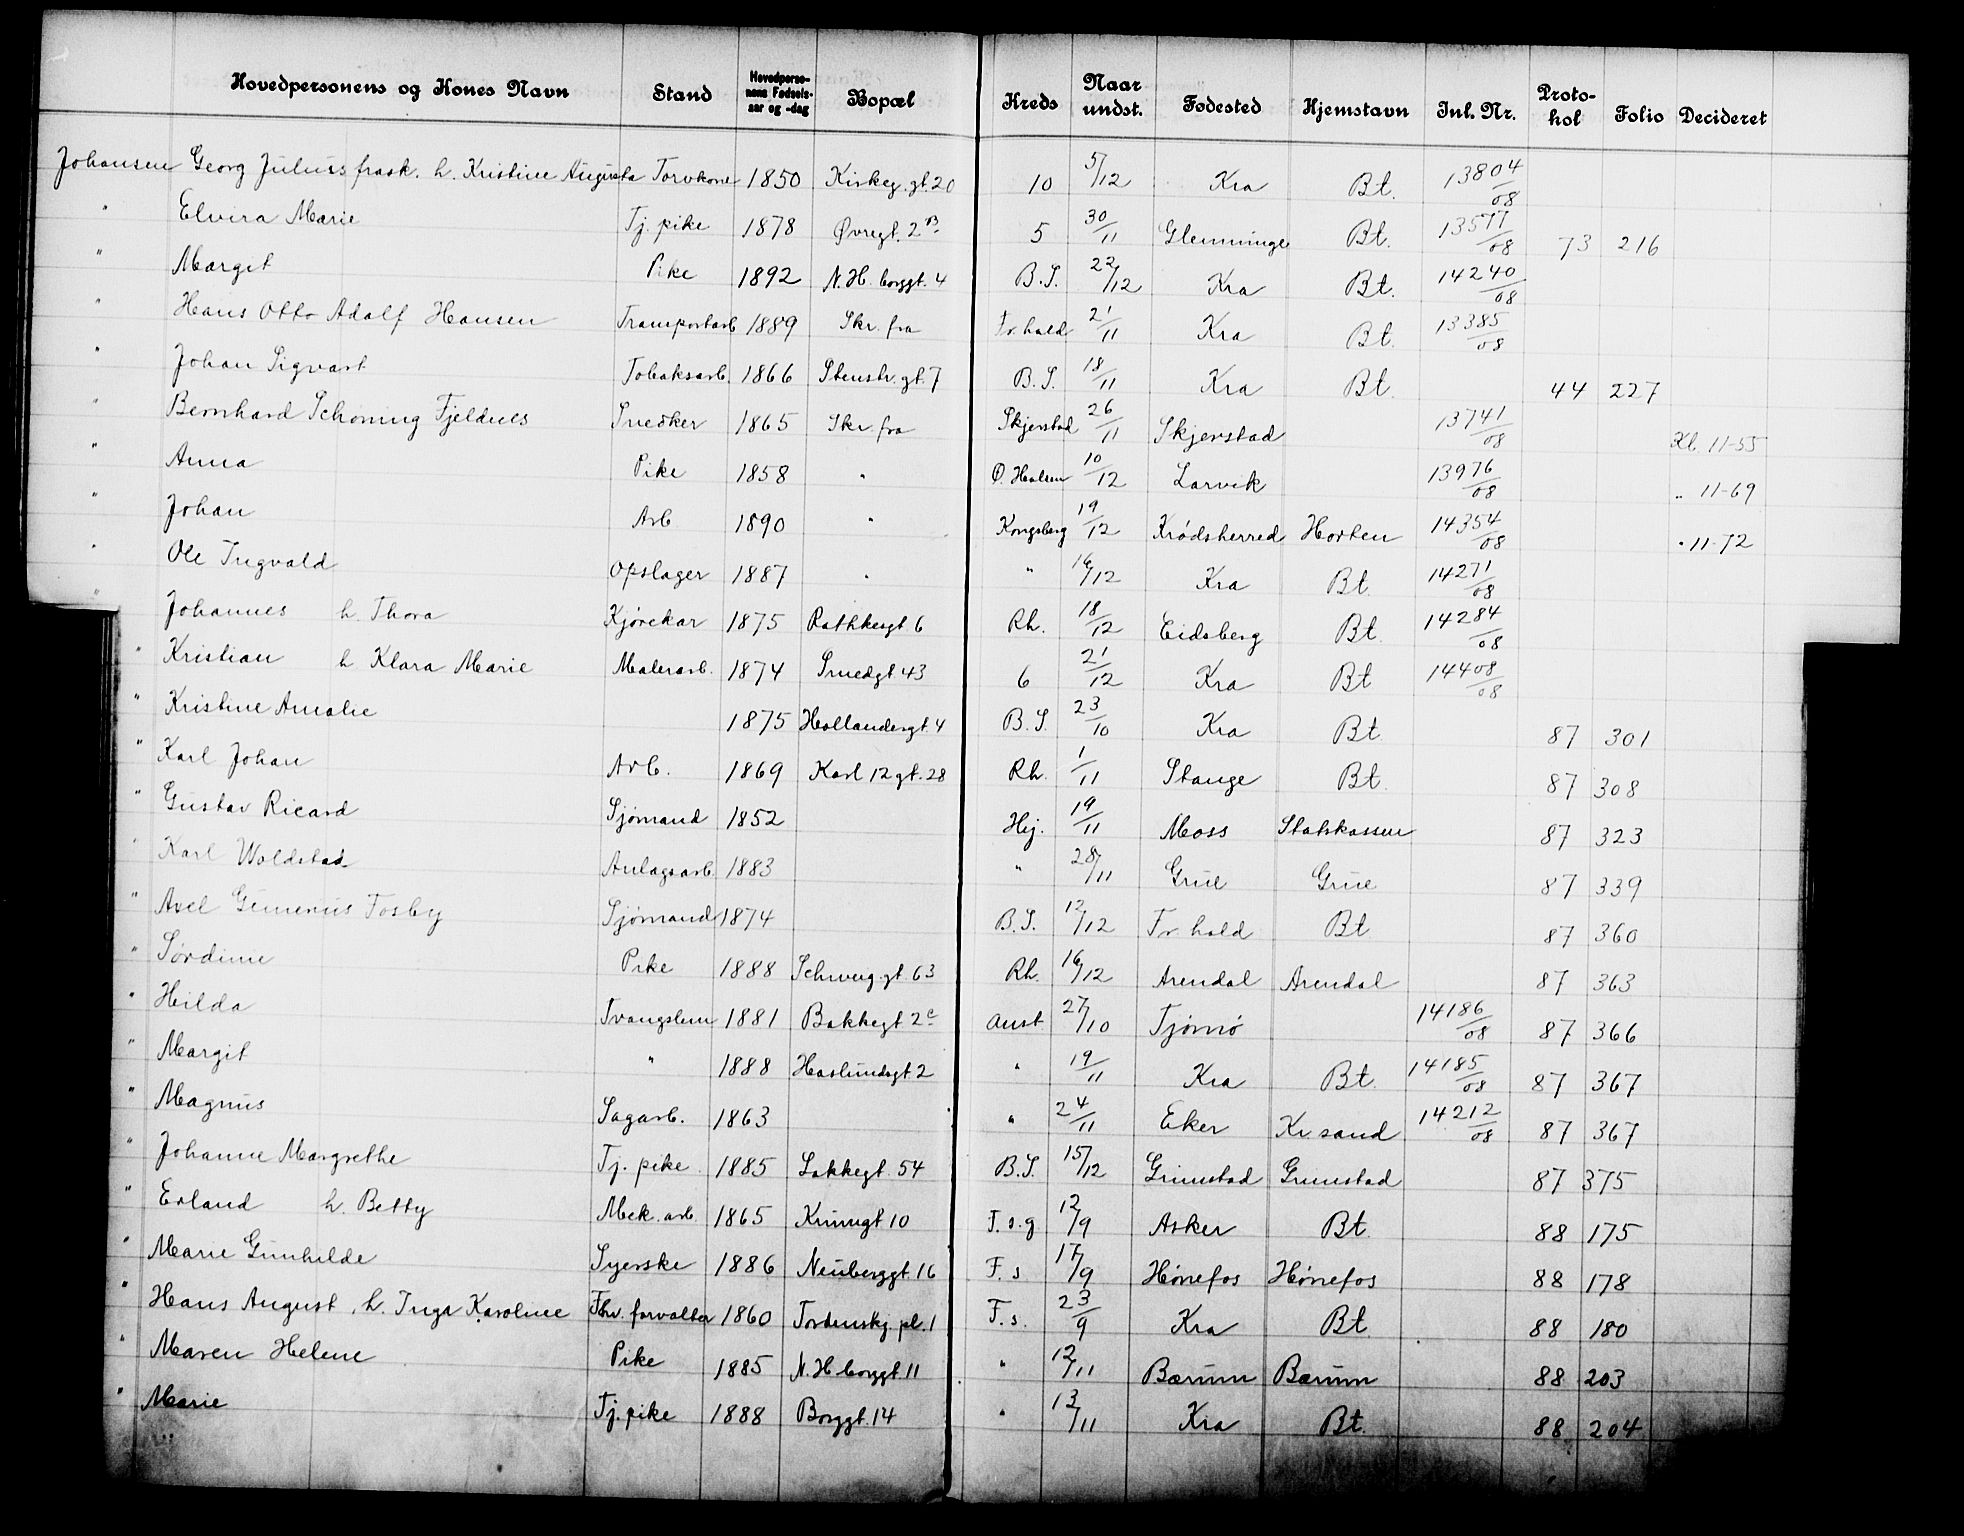 Hovedpersonens og Kones Navn Stand Hovedperso-nens Fødsels-aar og -dag Bopæl Kreds Naar undst. Fødested Hjemstavn Inl. Nr. Proto-kol Folio Decideret
Johansen Georg Julius frask. h. Kristine Augusta Torvkone 1850 Kirkeg. gt 20 10 5/12 Kra Bt. 13804/08
" Elvira Marie Tj. pike 1878 Øvregt. 2B 5 30/11 Glemminge Bt. 13577/08 73 216
" Margit Pike 1892 N. H. borggt. 4 B. S. 22/12 Kra Bt. 14240/08
" Hans Otto Adolf Hansen Transportarb 1889 Skr. fra Fr. hald 21/11 Kra Bt. 13385/08
" Johan Sigvart Tobaksarb. 1866 Stenstr. gt. 7 B. S. 18/11 Kra Bt. 44 227
" Bernhard Schøning Fjeldnes Snedker 1865 Skr. fra Skjerstad 26/11 Skjerstad 13741/08 Kl. 11-55
" Anna Pike 1858 " 10/12 Larvik 13976/08 " 11-69
" Johan Arb 1890 " Kongsberg 19/12 Krødsherred Horten 14354/08 " 11-72
" Ole Ingvald Opslager 1887 " " 16/12 Kra Bt. 14271/08
" Johannes h. Thora Kjørekar 1875 Rathkesgt 6 Rh. 18/12 Eidsberg Bt. 14284/08
" Kristian h Klara Marie Malerarb. 1874 Smedgt 43 6 21/12 Kra Bt 14408/08
" Kristine Amalie 1875 Hollandergt. 4 B. S. 23/10 Kra Bt. 87 301
" Karl Johan Arb. 1869 Karl 12 gt. 28 Rh. 1/11 Stange Bt. 87 308
" Gustav Ricard Sjømand 1852 Hj. 19/11 Moss Statskassen 87 323
" Karl Woldstad Anlagsarb. 1883 " 28/11 Grue Grue 87 339
" Axel Gimenius Fosby Sjømand 1874 B. S. 12/12 Fr. hald Bt 87 360
" Sørdine Pike 1888 Schweig. gt. 63 Rh. 16/12 Arendal Arendal 87 363
" Hilda Tvangslem 1881 Bakkegt 2c Anst 27/10 Tjømø 14186/08 87 366
" Margit " 1888 Haslundsgt 2 " 19/11 Kra Bt. 14185/08 87 367
" Magnus Sagarb. 1863 " 24/11 Eker Kr. sand 14212/08 87 367
" Johanne Margrethe Tj. pike 1885 Lakkegt. 54 B. S. 15/12 Grimstad Grimstad 87 375
" Erland h. Betty Mek. arb 1865 12/9 Asker Bt. 88 175
" Marie Gunhilde Syerske 1886 Neuberggt. 16 F. s 17/9 Hønefos Hønefos 88 178
" Hans August, h. Inga Karoline forvalter 1860 Tordenskj. pl. 1 F. s. 23/9 Kra Bt. 88 180
" Maren Helene Pike 1885 N. H borggt 11 " 12/11 Bærum Bærum 88 203
" Marie Tj. pike 1888 Borggt. 14 " 13/11 Kra Bt. 88 204